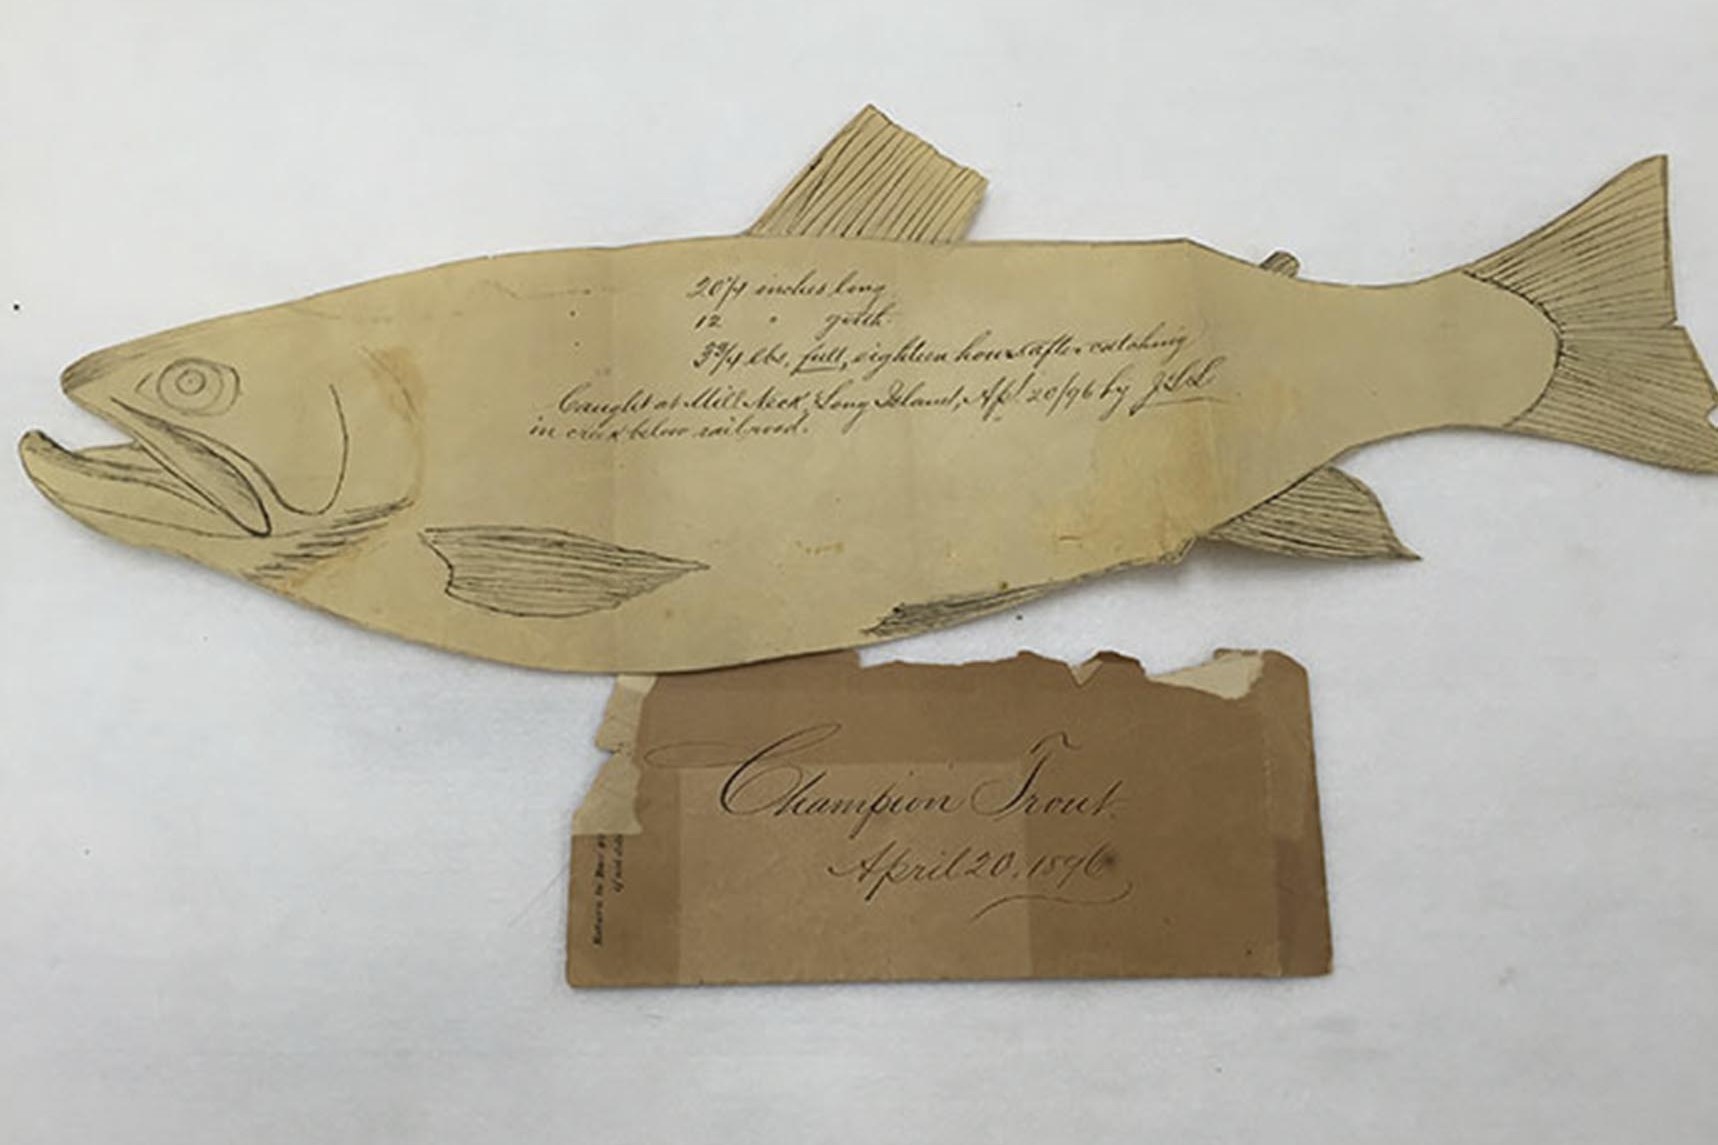 20 1/4 inches long
12 " girth.
3 3/4 lbs. full, eighteen hours after catching
Caught at Mill Neck, Long Island, Apl. 20/96 by J.L.L.
in creek below railroad.
Champion Trout.
April 20, 1896
Return to